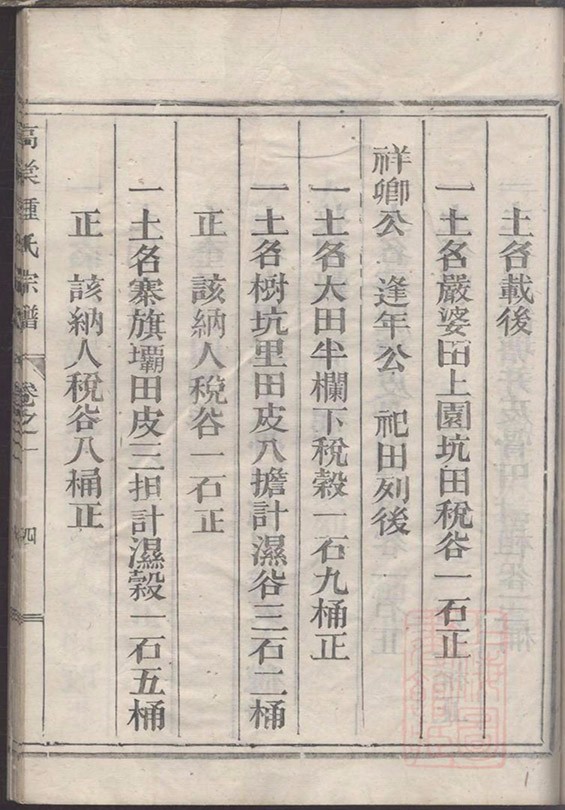 土名載後
一土名嚴婆田上園坑田稅谷一石正
祥卿公　逢年公　祀田列後
一土名大田半欄下稅穀一石九桶正
一土名樹坑里田皮八擔計濕谷三石二桶
正　該納人稅谷一石正
一土名寨旗壩田皮三担計濕穀一石五桶
正　該納人稅谷八桶正
高棠鍾氏宗譜　卷之一　四
1